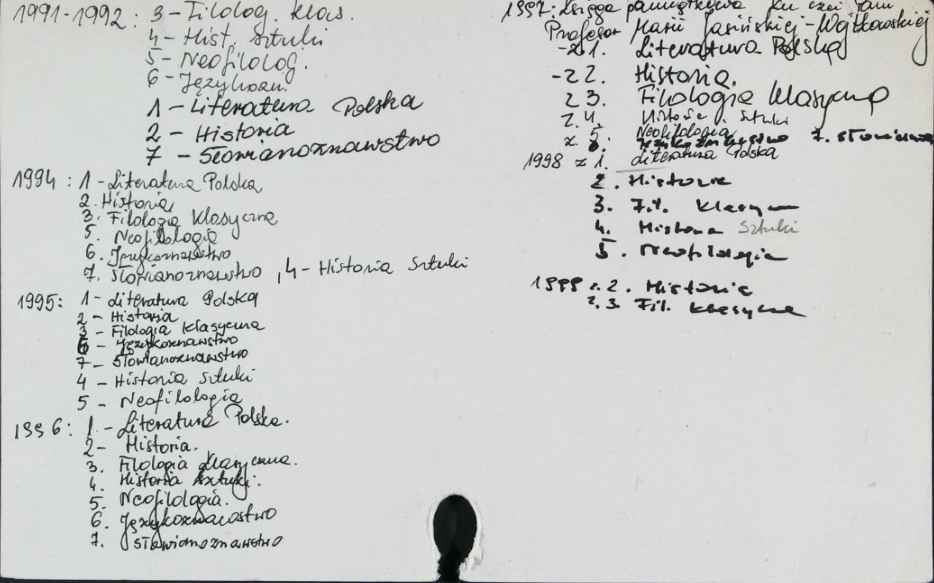 1991-1992: 3 - Filolog. klas.
4 - Hist. sztuki
5 - Neofilolog.
6 - Językozn.
1 - Literatura Polska
2 - Historia
7 - Słowianoznawstwo
1994: 1 - Literatura Polska
2. Historia
3. Filologia Klasyczna
5. Neofilologia
6. Językoznawstwo
7. Słowianoznawstwo, 4 - Historia Sztuki
1995: 1 - Literatura Polska
2 - Historia
3 - Filologia Klasyczna
6 - Językoznawstwo
7 - Słowianoznawstwo
4 - Historia Sztuki
5 - Neofilologia
1996: 1. - Literatura Polska.
2 - Historia.
3. Filologia Klasyczna.
4. Historia Sztuki.
5. Neofilologia.
6. Językoznawstwo
7. Słowianoznawstwo
1997: Księga pamiątkowa ku czci Pani
Profesor Marii Jasińskiej-Wojtkowskiej
- z 1. Literatura Polska
- z 2. Historia.
z 3. Filologia Klasyczna
z. 4. Historia Sztuki
z 5. Neofilologia
7. Słowianozn
1998 z 1. Literatura Polska
2. Historia
3. Fil. Klasyczn
4. Historia Sztuki
5. Neofilologia
1999 z. 2. Historia
z. 3 Fil. Klasyczna